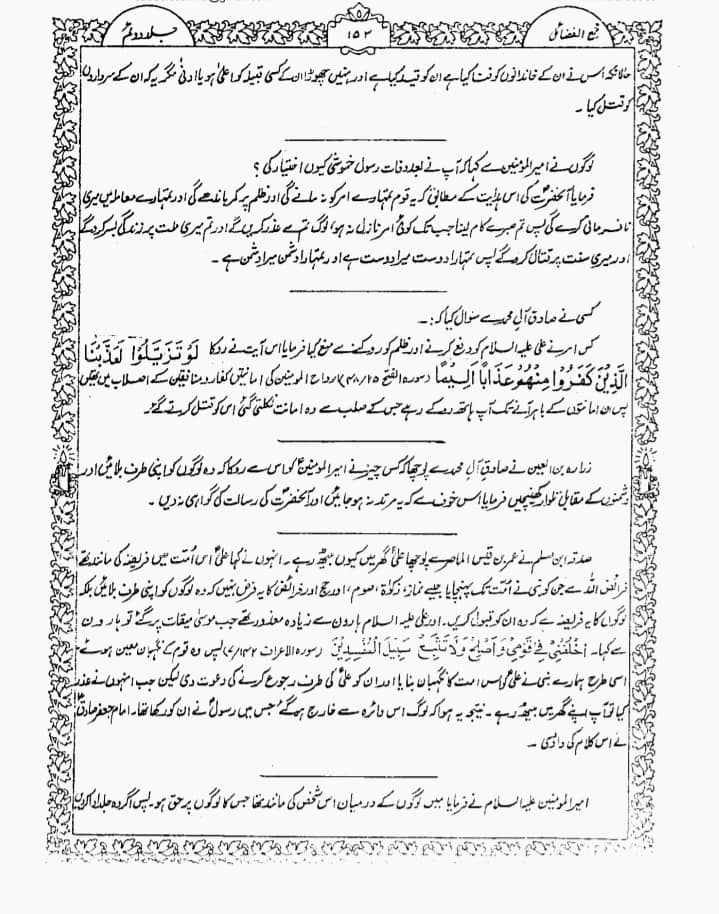 مجمع الفضائل
۱۵۲
جلد دوئم
حالانکہ اس نے ان کے خاندانوں کو فنا کیا ہے ان کو قید کیا ہے اور نہیں چھوڑا ان کے کسی قبیلہ کو اعلیٰ ہو یا ادنیٰ مگر یہ کہ ان کے سرداروں
کو قتل کیا ۔
لوگوں نے امیر المومنین سے کہا کہ آپ نے بعد وفات رسول خموشی کیوں اختیار کی ؟
فرمایا آنحضرتؐ کی اس ہدایت کے مطابق کہ یہ قوم تمہارے امر کو نہ مانے گی اور ظلم پر کمر باندھے گی اور تمہارے معاملہ میں میری
نافرمانی کرے گی پس تم صبر سے کام لینا جب تک کوئی امر نازل نہ ہو، لوگ تم سے غدر کریں گے اور تم میری ملت پر زندگی بسر کرو گے
اور میری سنت پر قتال کرو گے پس تمہارا دوست میرا دوست ہے اور تمہارا دشمن میرا دشمن ہے ۔
کسی نے صادق آلِ محمد سے سوال کیا کہ :۔
کس امر نے علی علیہ السلام کو دفع کرنے اور ظلم کو روکنے سے منع کیا فرمایا اس آیت نے روکا لَوْ تَزَيَّلُوْا لَعَذَّبْنَا
الَّذِيْنَ كَفَرُوْا مِنْهُمْ عَذَابًا اَلِيْمًا (سورہ الفتح ۴۸/۲۵) ارواح المومنین کی امانتیں کفار و منافقین کے اصلاب میں تھیں
پس ان امانتوں کے باہر آنے تک آپ ہاتھ روکے رہے جس کے صلب سے وہ امانت نکلتی گئی اس کو قتل کرتے گئے
زرارہ بن العین نے صادق آلِ محمد سے پوچھا کہ کس چیز نے امیر المومنین کو اس سے روکا کہ وہ لوگوں کو اپنی طرف بلائیں اور
دشمنوں کے مقابل تلوار کھینچیں فرمایا اس خوف سے کہ یہ مرتد نہ ہو جائیں اور آنحضرتؐ کی رسالت کی گواہی نہ دیں ۔
صدقہ ابن مسلم نے عمر بن قیس الماصر سے پوچھا علیؑ گھر میں کیوں بیٹھ رہے ۔ انہوں نے کہا علیؑ اس اُمت میں فریضہ کی مانند تھے
فرائض اللہ سے جن کو نبی نے اُمت تک پہنچایا جیسے نماز، زکوٰۃ، صوم، اور حج اور فرائض کا یہ فرض نہیں کہ وہ لوگوں کو اپنی طرف بلائیں بلکہ
لوگوں کا یہ فریضہ ہے کہ وہ ان کو قبول کریں۔ اور علی علیہ السلام ہارون سے زیادہ معذور تھے جب موسیٰ میقات پر گئے تو ہارون
سے کہا۔ اُخْلُفْنِيْ فِيْ قَوْمِيْ وَاَصْلِحْ وَلَا تَتَّبِعْ سَبِيْلَ الْمُفْسِدِيْنَ (سورہ الاعراف ۷/۱۴۲) پس وہ قوم کے نگہبان معین ہوئے
اسی طرح ہمارے نبی نے علیؑ کو اس امت کا نگہبان بنایا اور ان کو علیؑ کی طرف رجوع کرنے کی دعوت دی لیکن جب انہوں نے غدر
کیا تو آپ اپنے گھر میں بیٹھ رہے ۔ نتیجہ یہ ہوا کہ لوگ اس دائرہ سے خارج ہو گئے جس میں رسولؐ نے ان کو رکھا تھا۔ امام جعفر صادقؑ
نے اس کلام کی داد دی ۔
امیر المومنین علیہ السلام نے فرمایا میں لوگوں کے درمیان اس شخص کی مانند تھا جس کا لوگوں پر حق ہو۔ پس اگر وہ جلد ادا کریں